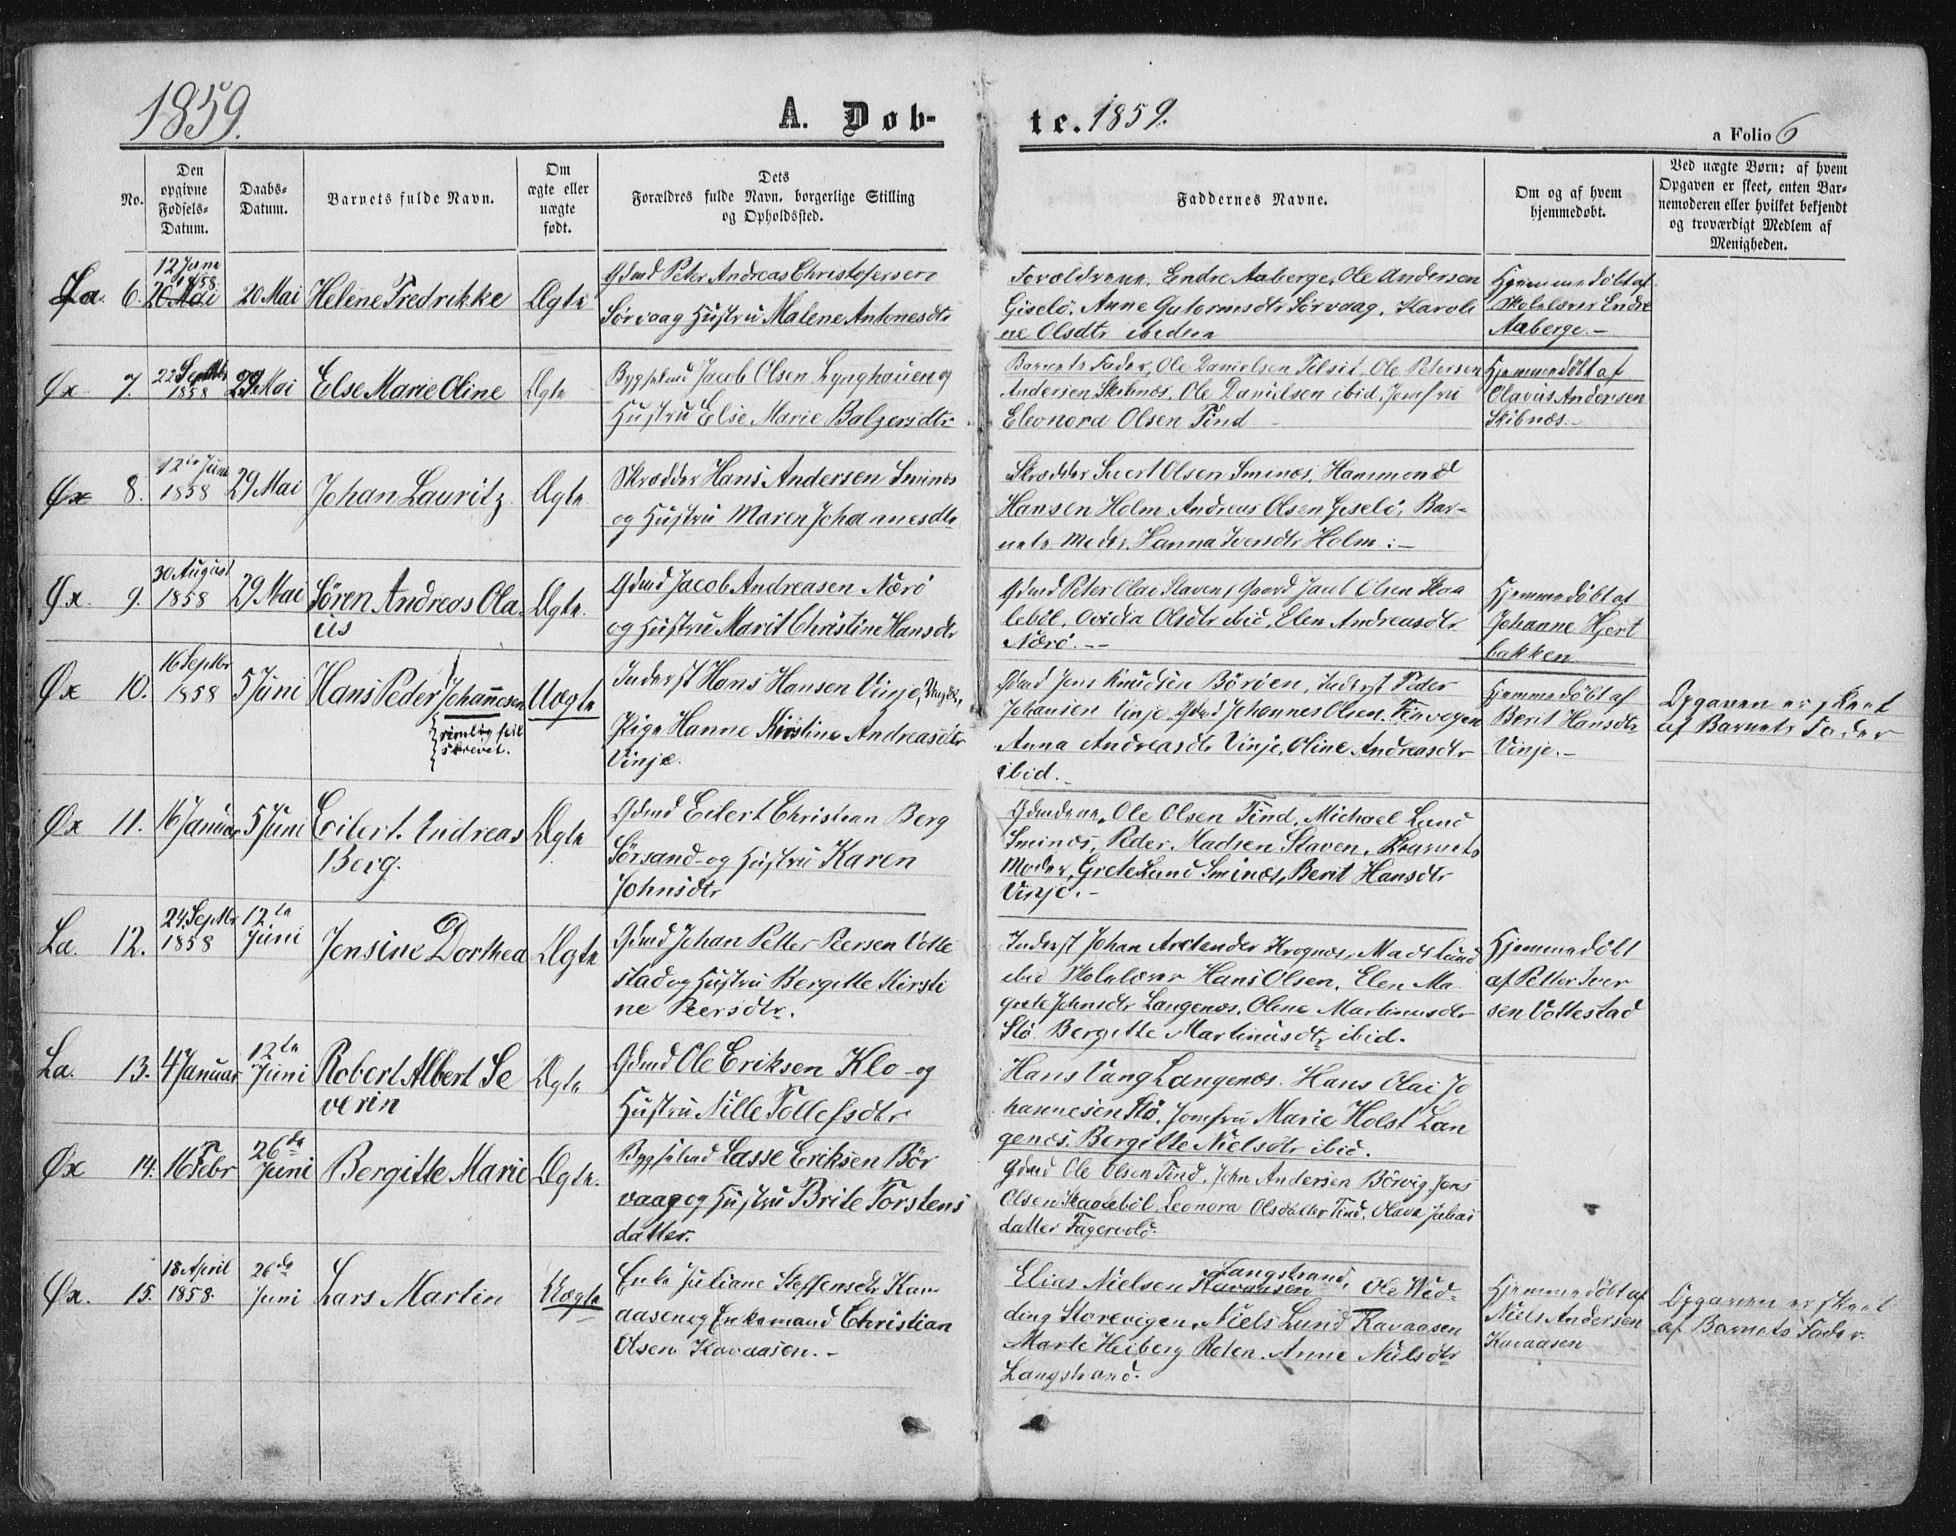 1859.
A. Døb-
te. 1859.
a Folio 6
No.
Den
opgivne
Fødsels-
Datum.
Daabs-
Datum.
Barnets fulde Navn.
Om
ægte eller
uægte
født.
Dets
Forældres fulde Navn, borgerlige Stilling
og Opholdssted.
Faddernes Navne.
Om og af hvem
hjemmedøbt.
Ved uægte Børn: af hvem
Opgaven er skeet, enten Bar-
nemoderen eller hvilket bekjendt
og troværdigt Medlem af
Menigheden.
La. 6.
12 Juni
1858.
20 Mai
20 Mai
Helene Fredrikke
Ægte
Gdmd Peter Andreas Christofersen
Sørvaag Hustru Malene Antonesdtr
Forældrene, Endre Aaberge, Ole Andersen
Giselö, Anne Guttormsdtr Sørvaag, Karoli
ne Olsdtr ibidem
Hjemmedöbt af
Skolelærer Endre
Aaberge.-
Øx 7.
22 Septbr
1858
29 Mai
Else Marie Oline
Ægte
Bygselmd Jacob Olsen Lynghauen og
Hustru Else Marie Balzersdtr
Barnets Fader, Ole Danielsen Tilsit, Ole Petersen
Andersen Skibnæs, Ole Danielsen ibid, Jomfru
Eleonora Olsen Tind -
Hjemmedöbt af
Olavus Andersen
Skibnæs.-
Øx 8.
12te Juni
1858
29 Mai
Johan Lauritz
Ægte
Skrædder Hans Andersen Sminæs
og Hustru Maren Johannesdtr
Skrædder Sivert Olsen Sminæs, Hammond
Hansen Holm, Andreas Olsen Giselö, Bar-
nets Moder, Hanna Iversdtr Holm :-
Øx. 9.
30 August
1858
29 Mai
Sören Andreas Ola
us
Ægte.
Gdmd Jacob Andreasen Nærö
og Hustru Marit Christine Hansdtr
Gdmd Peter Olai Staven, Gaard Jacob Olsen Skaa
leböl, Ovidia Olsdtr ibid, Elen Andreasdtr
Nærö.--
Hjemmedöbt af
Johanne Hjort
bakken
Øx 10.
16 Septbr
1858
5 Juni
Hans Peder Johannesen
rimelig feil
skrevet.
Uægte
Inderst Hans Hansen Vinje, Ungk.,
Pige Hanne Kirstine Andreasdtr
Vinje.
Gdmd Jens Knudsen Böröen, Inderst Peder
Johansen Vinje, Gdmd Johannes Olsen
Anna Andreasdtr Vinje, Oline Andreasdtr
ibid.-
Hjemmedöbt af
Berit Hansdtr
Vinje.-
Opgaven er skeet
af Barnets Fader
Øx 11.
16 Januar
5 Juni
Eilert Andreas
Berg.
Ægte
Gdmd Eilert Christian Berg
Sörsand og Hustru Karen
Johnsdtr
Gdmdene, Ole Olsen Tind, Michael Lund
Sminæs, Peder Madsen Staven, Barnets
Moder, Grete Lund Sminæs, Berit Hansdtr
Vinje.-
La. 12.
24 Septbr
1858
12te
Juni
Jensine Dorthea
Ægte
Gdmd Johan Petter Peersen Votte
stad og Hustru Bergitte Kirsti
ne Peersdtr.
Inderst Johan Arctander Krognæs, Mads Lund
ibid Skolelærer Hans Olsen, Elen Ma
grete Johnsdtr Langenæs, Oline Martinusdtr
Stö. Bergitte Martinusdtr ibid.
Hjemmedöbt
af Petter Iver
sen Vottestad
La. 13.
4 Januar
12te
Juni
Robert Albert Se
verin
Ægte
Gdmd Ole Eriksen Klo - og
Hustru Nille Tollefsdtr
Hans Vang Langenæs, Hans Olai Jo
hannesen Stö, Jomfru Marie Holst Lan
genæs, Bergitte Nielsdtr ibid.
Øx 14.
16 Febr
26de
Juni
Bergitte Marie
Ægte.
Bygselmd Lasse Eriksen Bör
vaag og Hustru Brite Torstens
datter.
Gdmd Ole Olsen Tind, John Andersen Börvig, Jens
Olsen Skaaleböl, Leonora Olsdatter Tind, Olava Johas
datter Fagervold.
Øx. 15.
18 April
1858.
26de
Juni
Lars Martin
Uægte
Enke Juliane Steffensdtr Kav-
aasen og Enkemand Christian
Olsen Kavaasen.-
Langstrand,
Elias Nielsen Kavaasen Ole Wed-
ding Storevegen, Niels Lund Kavaasen
Marte Heiberg Roten, Anne Nielsdtr
Langstrand.
Hjemmedöbt af
Niels Andersen
Kavaasen
Opgaven er skeet
af Barnets Fader.